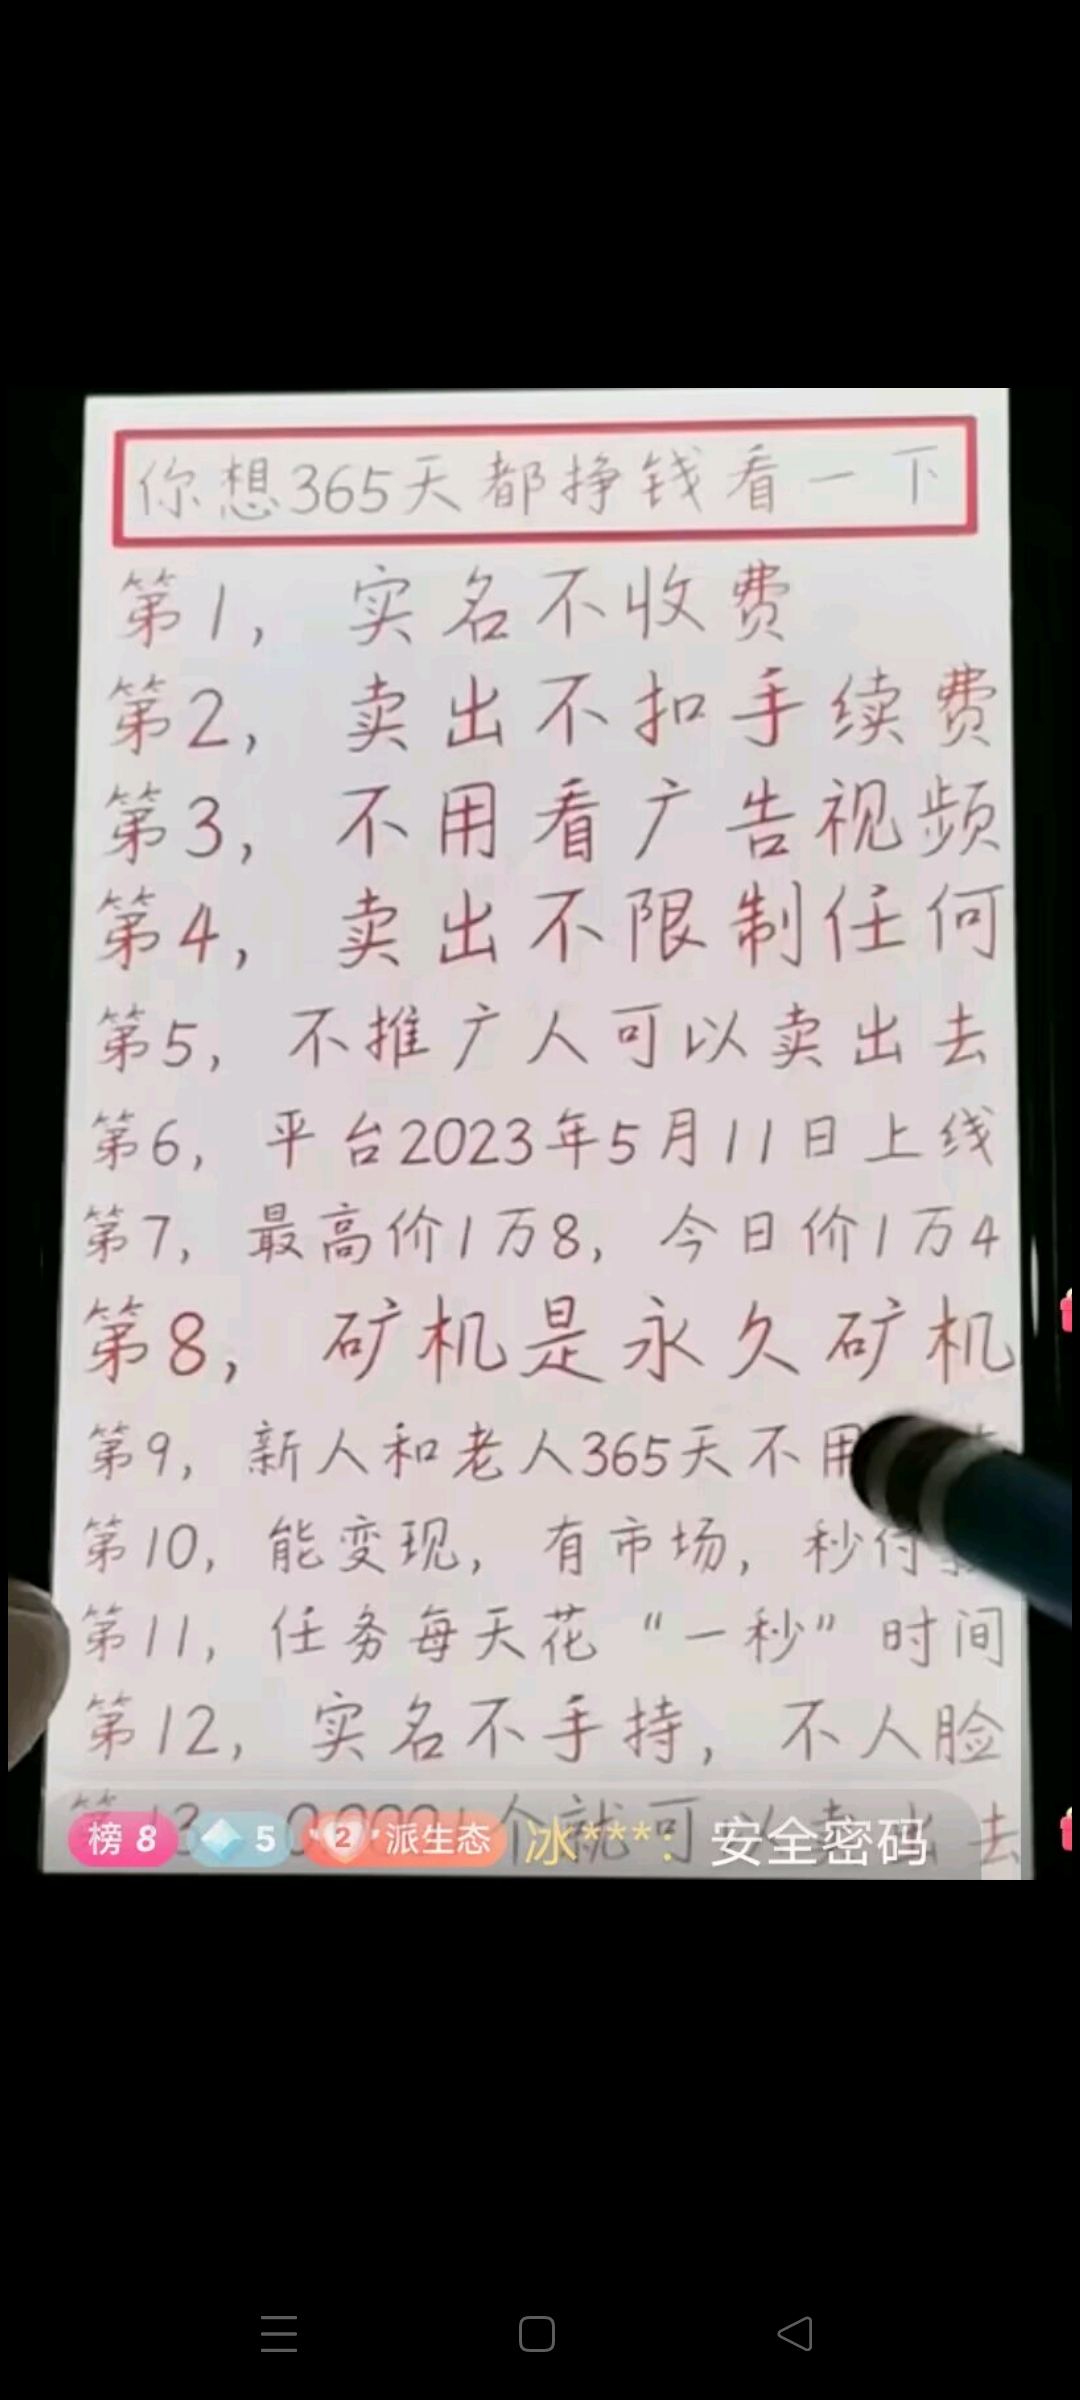 你想365天都挣钱看一下
第1, 实名不收费
第2, 卖出不扣手续费
第3, 不用看广告视频
第4, 卖出不限制任何
第5, 不推广人可以卖出去
第6, 平台2023年5月11日上线
第7, 最高价1万8, 今日价1万4
第8, 矿机是永久矿机
第9, 新人和老人365天不用
第10, 能变现, 有市场, 秒付
第11, 任务每天花“一秒”时间
第12, 实名不手持, 不人脸
个就可以卖出去
榜 8 5 2 派生态 冰***: 安全密码